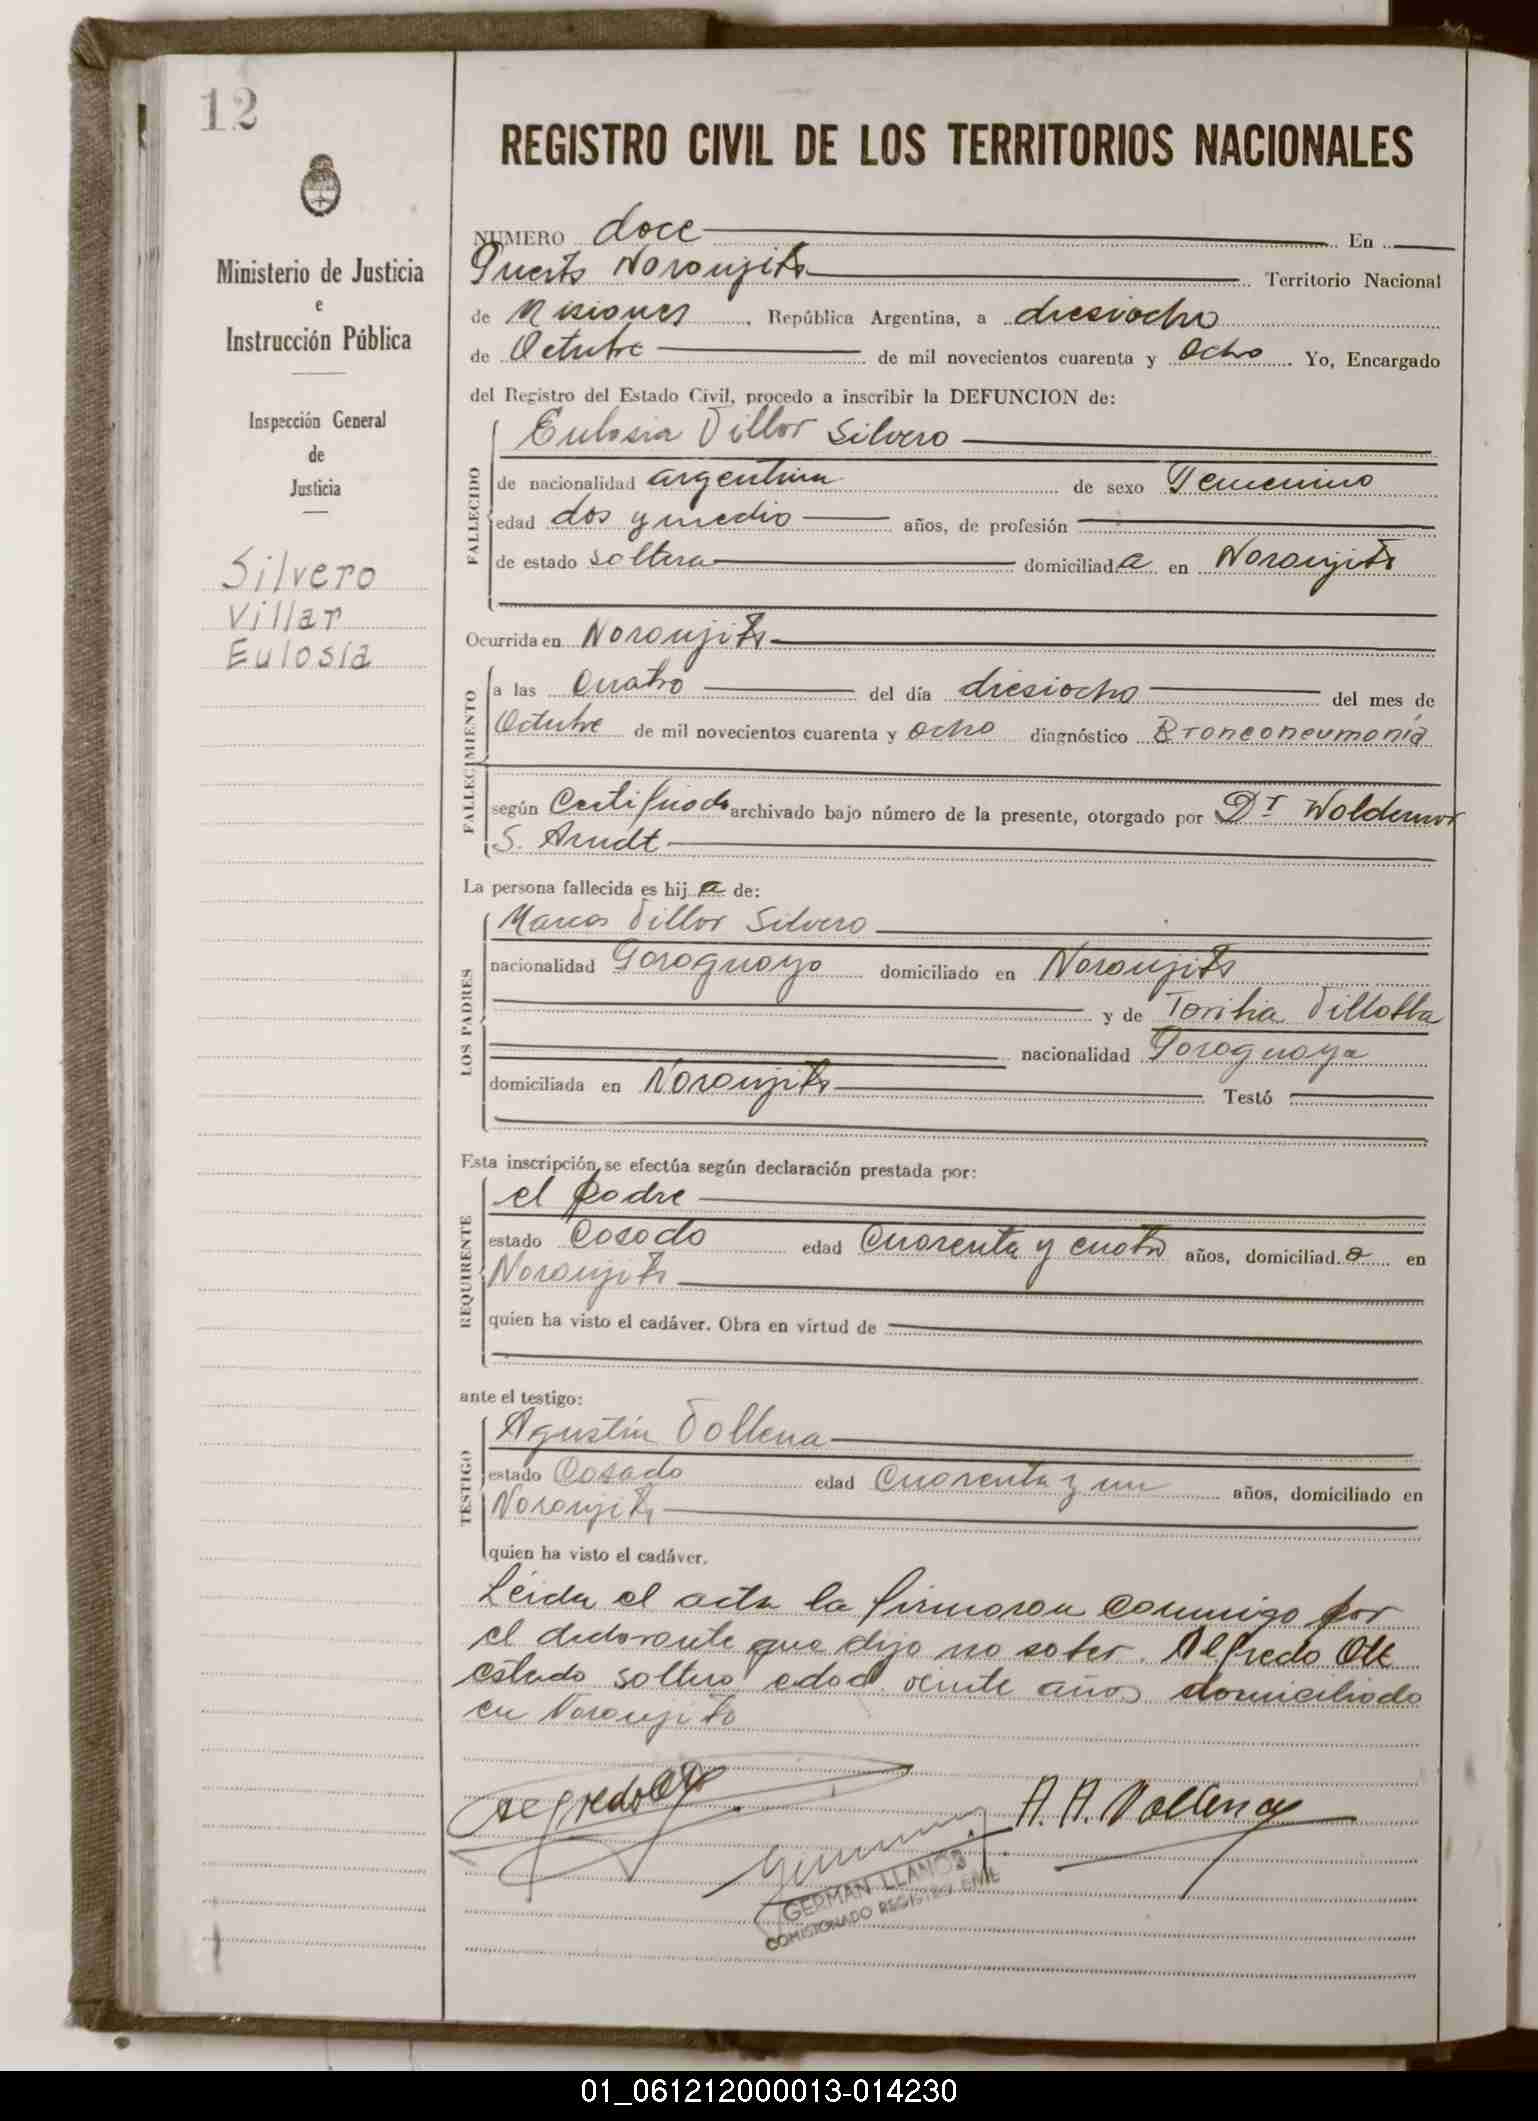 12
REGISTRO CIVIL DE LOS TERRITORIOS NACIONALES
Ministerio de Justicia
e
Instrucción Pública
Inspección General
de
Justicia
Silvero
Villar
Eulosía
NUMERO doce En
Puerto Naranjito Territorio Nacional
de Misiones, República Argentina, a diesiocho
de Octubre de mil novecientos cuarenta y Ocho. Yo, Encargado
del Registro del Estado Civil, procedo a inscribir la DEFUNCION de:
FALLECIDO
Eulosia Villar Silvero
de nacionalidad argentina de sexo Femenino
edad dos y medio años, de profesión
de estado soltera domiciliada en Naranjito
Ocurrida en Naranjito
FALLECIMIENTO
a las Cuatro del día diesiocho del mes de
Octubre de mil novecientos cuarenta y ocho diagnóstico Bronconeumonía
según Certificado archivado bajo número de la presente, otorgado por Dr Woldemar
S. Arndt
La persona fallecida es hija de:
LOS PADRES
Marcos Villar Silvero
nacionalidad Paraguayo domiciliado en Naranjito
y de Villalba
nacionalidad Paraguaya
domiciliada en Naranjito Testó
Esta inscripción se efectúa según declaración prestada por:
REQUIRENTE
el padre
estado Casado edad Cuarenta y cuatro años, domiciliado en
Naranjito
quien ha visto el cadáver. Obra en virtud de
ante el testigo:
TESTIGO
Agustín Vallena
estado Casado edad Cuarenta y un años, domiciliado en
Naranjito
quien ha visto el cadáver.
Leida el acta la firmaron conmigo por
el declarante que dijo no saber. Alfredo Ott
estado soltero edad veinte años domiciliado
en Naranjito
A. A. Vallena
GERMAN LLANOS
COMISIONADO REGISTRO CIVIL
01_061212000013-014230